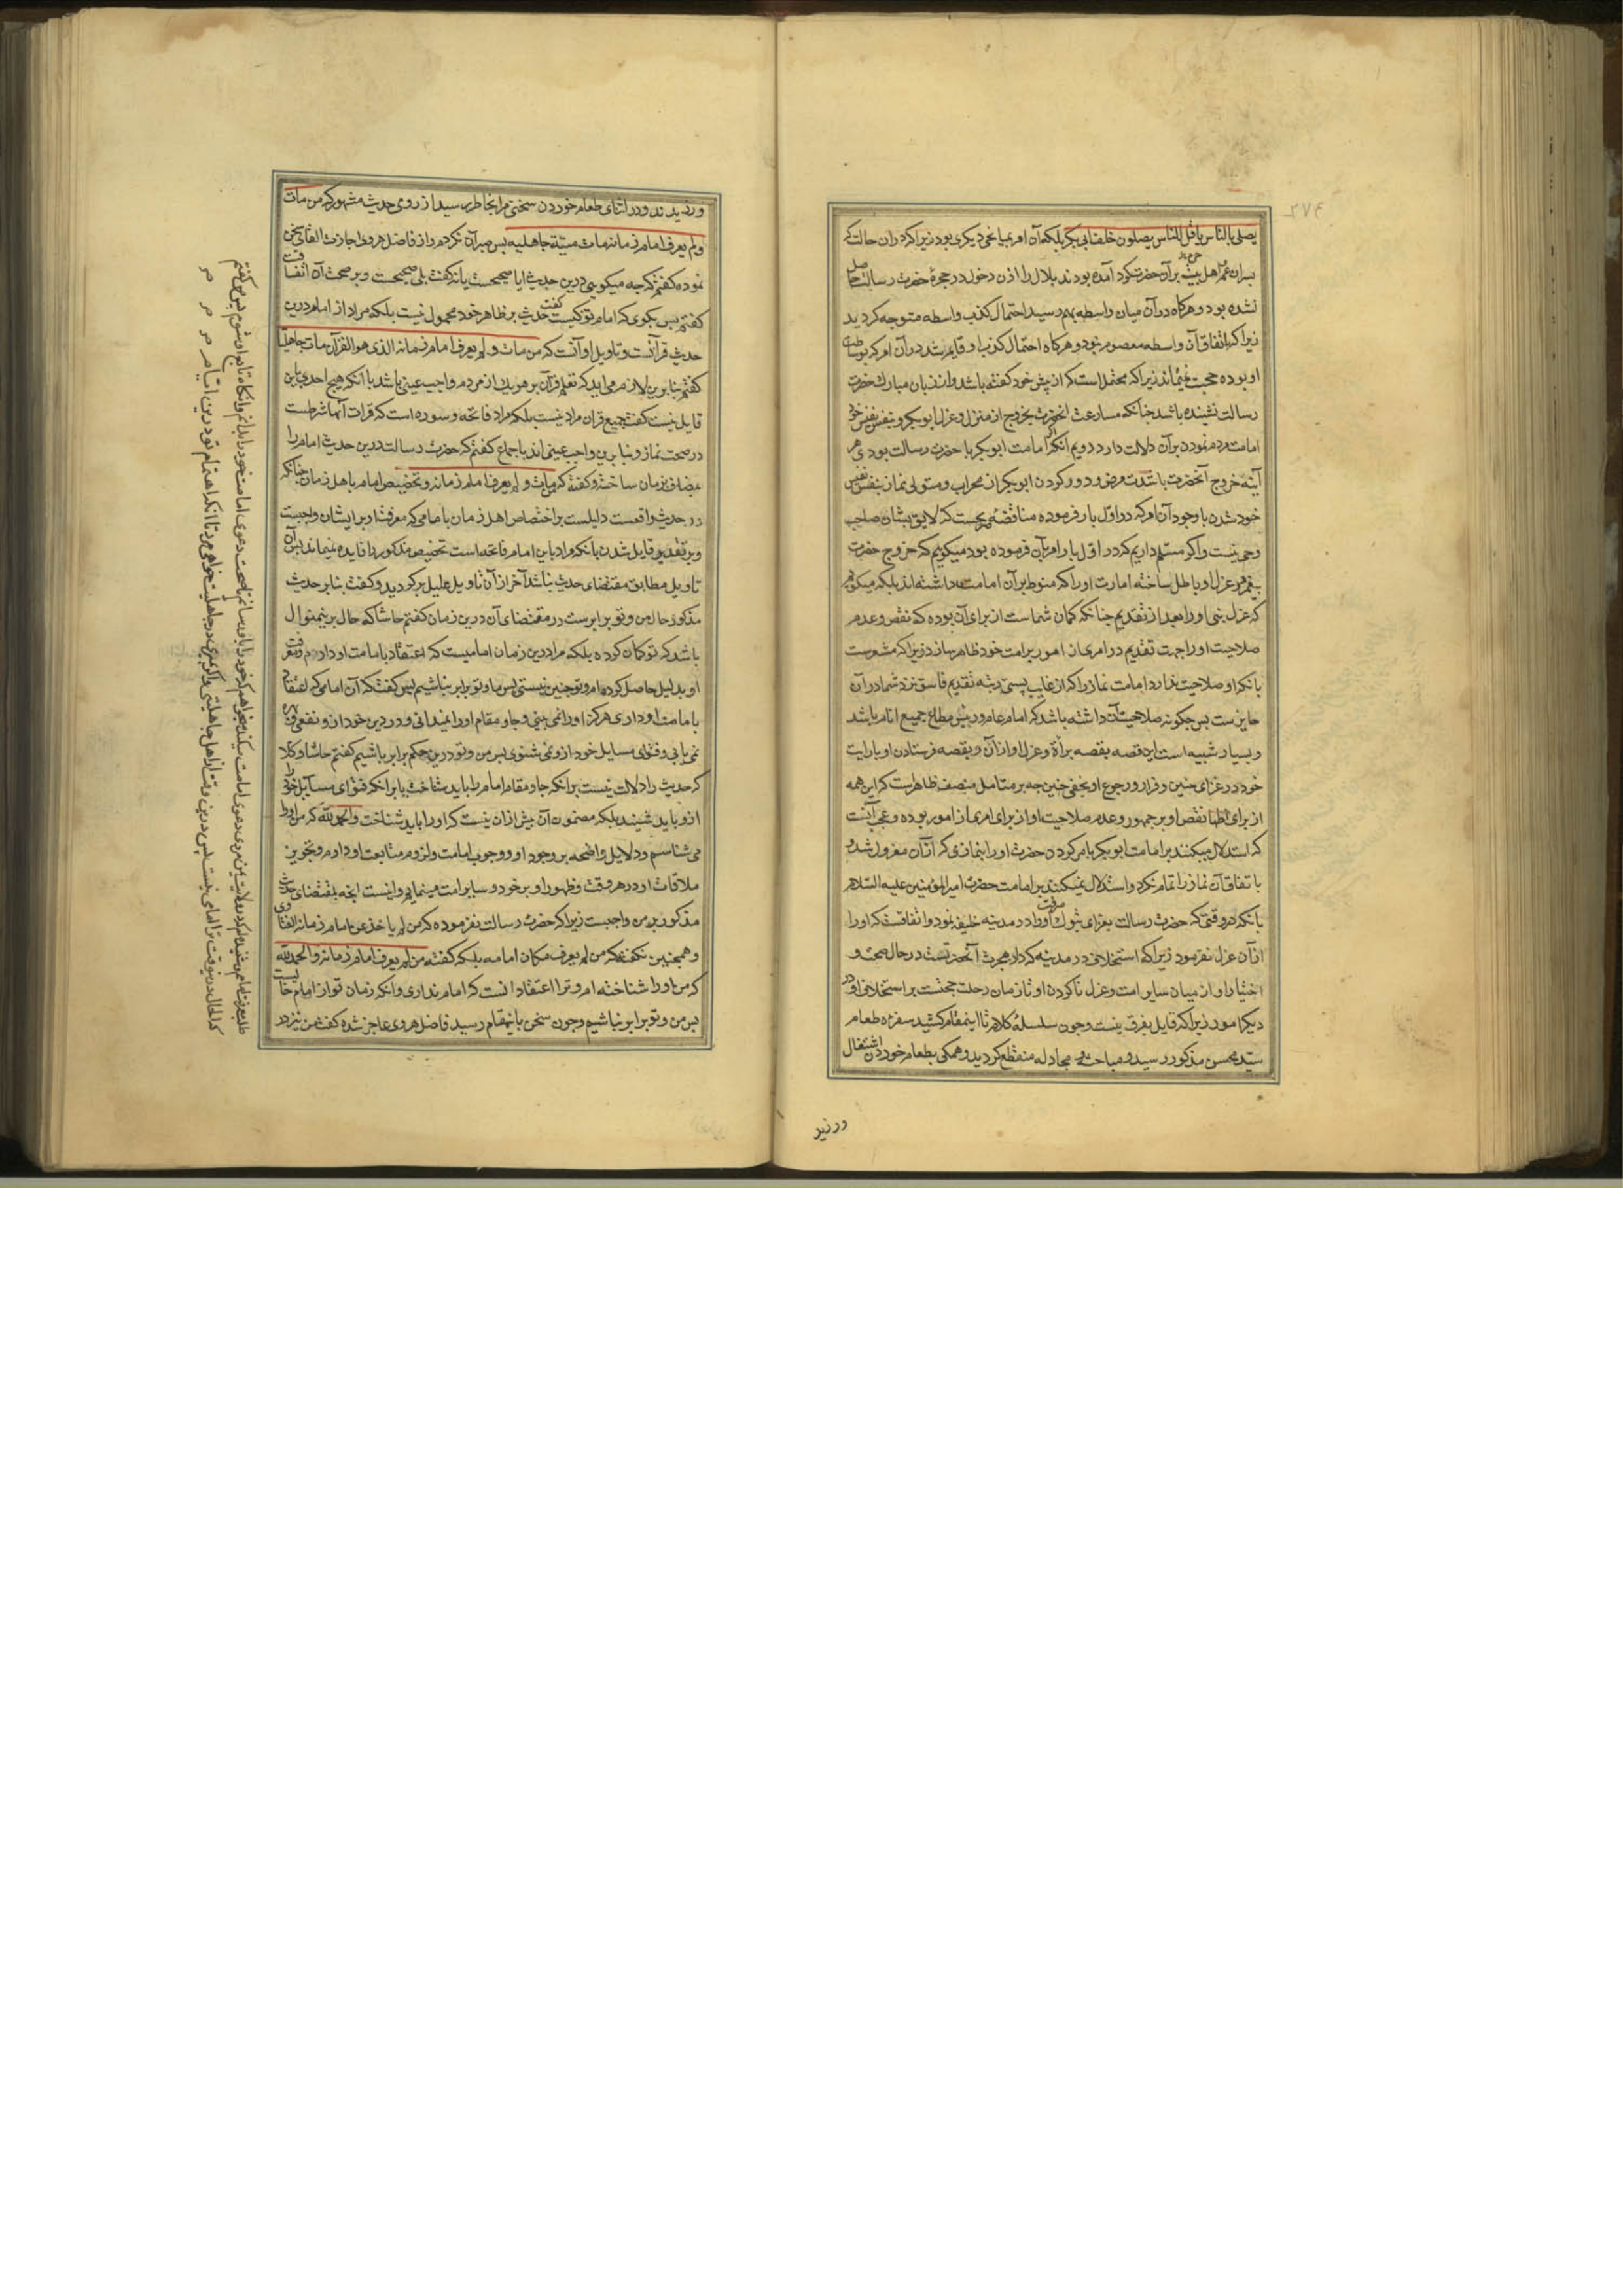 ۲۷۴
یصلی بالناس یا قل للناس یصلون خلف ابی بکر بلکه آن امر بمبا نجی دیکری بود زیرا که در ان حالت که
بسران عم و اهل بیت بر آن حضرت کرد آمده بودند بلال را اذن دخول در حجرهٔ حضرت رسالت حاصل
نشده بود و هرکاه در آن میان واسطه بهم رسید احتمال کذب واسطه متوجه کردید
زیرا که باتفاق آن واسطه معصوم نبود و هرکاه احتمال کذب او قایم شد در آن امر که بوساطت
او بوده حجت نمیماند زیرا که محتمل است که از پیش خود کفته باشد و از زبان مبارک حضرت
رسالت نشنیده باشد چنانکه مسارعت انحضرت بخروج از منزل و عزل ابوبکر و بنفس نفیس خود
امامت مردم نمودن بر آن دلالت دارد دویم آنکه اکر امامت ابوبکر با حضرت رسالت بودی هر
آینه خروج آنحضرت باشدت مرض و دور کردن ابوبکر از محراب و متولی نماز بنفس نفیس
خود شدن با وجود آن امر که در اول بار فرموده مناقضهٔ صریحست که لایق بشان صاحب
وحی نیست و اکر مسلم داریم که در اول بار امر بآن فرموده بود میکوییم که خروج حضرت
پیغمبر و عزل او باطل ساخته امارت او را که منوط بر آن امامت داشته اند بلکه میکوییم
که عزل نبی او را بعد از تقدیم چنانکه کمان شماست از برای آن بوده که نقص و عدم
صلاحیت او را جهت تقدیم در امری از امور بر امت خود ظاهر سازد زیرا که مشعرست
بانکه او صلاحیت ندارد امامت نماز را که از غایب پستی رتبه تقدیم فاسق نزد شما در آن
جایزست پس چکونه صلاحیت آن داشته باشد که امام عام و رییس مطاع جمیع انام باشد
و بسیار شبیه است این قصه بقصه برأة و عزل او از آن و بقصه فرستادن او با رایت
خود در غزای حنین و فرار و رجوع او بخفی حنین چه بر متامل منصف ظاهرست که این همه
از برای اظهار نقص او بر جمهور و عدم صلاحیت او از برای امری از امور بوده و عجب آنست
که استدلال میکنند بر امامت ابوبکر بامر کردن حضرت او را بنمازی که از آن معزول شد و
باتفاق آن نماز را تمام نکرد و استدلال نمیکنند بر امامت حضرت امیر المؤمنین علیه السلام
بانکه در وقتی که حضرت رسالت بغزای تبوک میرفت او را در مدینه خلیفه نمود و اتفاقست که او را
از آن عزل نفرمود زیرا که استخلاف در مدینه که دار هجرت آنحضرتست در حال صحت و
اختیار او از میان سایر امت و عزل ناکردن او تا زمان رحلت حجتست بر استخلاف او در
دیکر امور زیرا که قایل بفرق نیست و چون سلسلهٔ کلام تا اینمقام کشید سفره طعام
سید محسن مذکور رسید و مباحثه و مجادله منقطع کردید و همکی بطعام خوردن اشتغال
ورزید
ورزیدند و در اثنای طعام خوردن سخنی مرا بخاطر رسید از روی حدیث مشهور که من مات
ولم یعرف امام زمانه مات میتة جاهلیه پس صبر آن نکردم و از فاضل هروی اجازت القای سخن
نموده کفتم که چه میکویی درین حدیث ایا صحیحست یا نه کفت بلی صحیحست و بر صحت آن اتفاقست
کفتم پس بکوی که امام تو کیست کفت حدیث بر ظاهر خود محمول نیست بلکه مراد از امام درین
حدیث قرآنست و تاویل او آنست که من مات و لم یعرف امام زمانه الذی هو القرآن مات جاهلیا
کفتم بنا برین لازم می اید که تعلم قرآن بر هر یک از مردم واجب عینی باشد با آنکه هیچ احدی باین
قایل نیست کفت جمیع قران مراد نیست بلکه مراد فاتحه و سوره است که قرات آنها شرطست
در صحت نماز و بنا برین واجب عینی اند باجماع کفتم که حضرت رسالت درین حدیث امام را
مضاف بزمان ساخته و کفته که من مات و لم یعرف امام زمانه و تخصیص امام باهل زمان چنانکه
در حدیث واقعست دلیلست بر اختصاص اهل زمان بامامی که معرفت او بر ایشان واجبست
و بر تقدیر قایل شدن بانکه مراد باین امام فاتحه است تخصیص مذکور را فایده نمیماند پس آن
تاویل مطابق مقتضای حدیث نباشد آخر از آن تاویل علیل برکردید و کفت بنا بر حدیث
مذکور حال من و تو برابرست در مقتضای آن درین زمان کفتم حاشا که حال برینمنوال
باشد که تو کمان کرده بلکه مرا درین زمان امامیست که اعتقاد بامامت او دارم و معرفت
او بدلیل حاصل کرده ام و تو چنین نیستی پس ما و تو برابر نباشیم پس کفت که آن امامی که اعتقاد
بامامت او داری هرکز او را نمی بینی و جا و مقام او را نمیدانی و در دین خود از و نفعی
نمی یابی و فتوای مسایل خود از و نمی شنوی پس من و تو درین حکم برابر باشیم کفتم حاشا و کلا
که حدیث را دلالت نیست بر انکه جا و مقام امام را باید شناخت یا بر انکه فتوای مسایل خود را
از و باید شنید بلکه مضمون آن بیش ازان نیست که او را باید شناخت و الحمد لله که من او را
می شناسم و دلایل واضحه بر وجود او و وجوب امامت و لزوم متابعت او دارم و تجویز
ملاقات او در هر وقت و ظهور او بر خود و سایر امت مینمایم و اینست انچه بمقتضای حدیث
مذکور بر من واجبست زیرا که حضرت رسالت نفرموده که من لم یاخذ عن امام زمانه الفتاوی
و همچنین نکفته که من لم یعرف مکان امامه بلکه کفته من لم یعرف امام زمانه و الحمد لله
که من او را شناخته ام و ترا اعتقاد انست که امام نداری و انکه زمان تو از امام خالیست
پس من و تو برابر نباشیم و چون سخن باینمقام رسید فاضل هروی عاجز شده کفت من نیز در